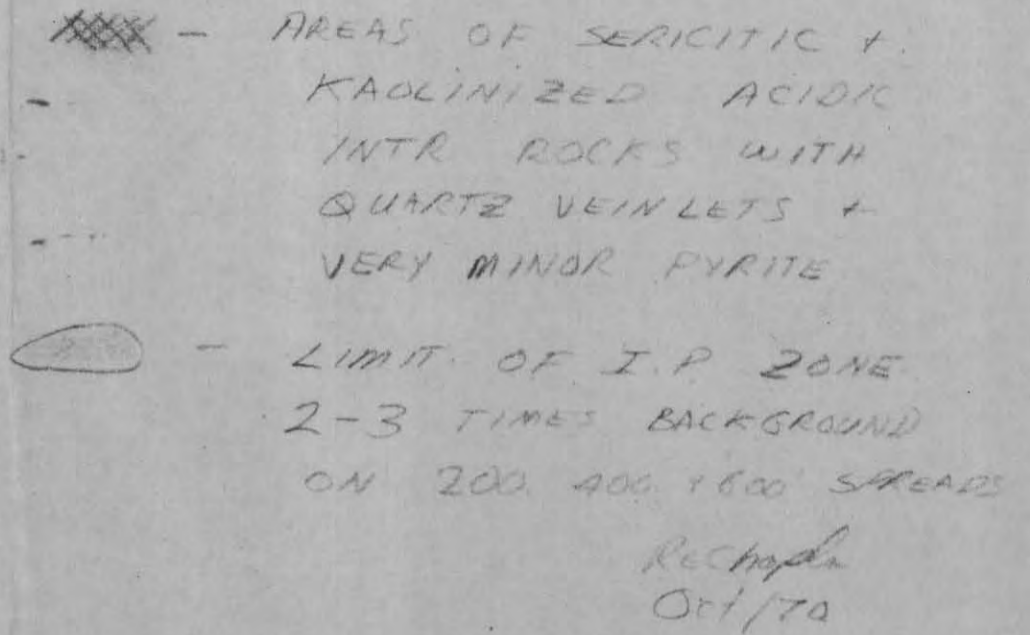 - AREAS OF SERICITIC +
KAOLINIZED ACIDIC
INTR ROCKS WITH
QUARTZ VEINLETS +
VERY MINOR PYRITE
- LIMIT OF I.P ZONE
2-3 TIMES BACKGROUND
ON 200, 400, + 600' SPREADS
Oct/70